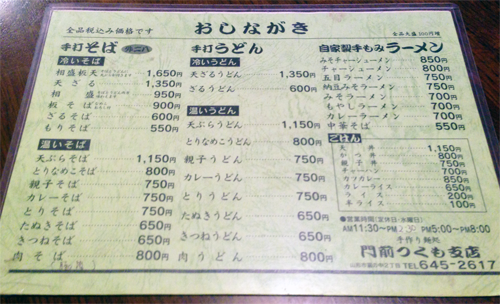 全品税込み価格です
おしながき
全品大盛 100円増
手打そば
冷いそば
相盛板天 1,650円
天ざる 1,350円
相盛 950円
板そば 900円
ざるそば 600円
もりそば 550円
温いそば
天ぷらそば 1,150円
とりなめこそば 800円
親子そば 750円
カレーそば 750円
とりそば 650円
たぬきそば 650円
きつねそば 650円
肉そば 800円
手打うどん
冷いうどん
天ざるうどん 1,350円
ざるうどん 600円
温いうどん
天ぷらうどん 1,150円
とりなめこうどん 800円
親子うどん 750円
カレーうどん 750円
とりうどん 650円
たぬきうどん 650円
きつねうどん 650円
肉うどん 800円
自家製手もみラーメン
みそチャーシューメン 850円
チャーシューメン 800円
五目ラーメン 750円
納豆みそラーメン 750円
みそラーメン 700円
もやしラーメン 700円
カレーラーメン 700円
中華そば 550円
ごはん
天丼 1,150円
かつ丼 800円
親子丼 750円
チャーハン 700円
カツカレー 850円
カレーライス 650円
ライス 200円
半ライス 100円
●営業時間(定休日・水曜日)
AM11:30〜PM2:30 PM5:00〜PM8:00
手作り麺処
門前つくも支店
TEL 645-2617